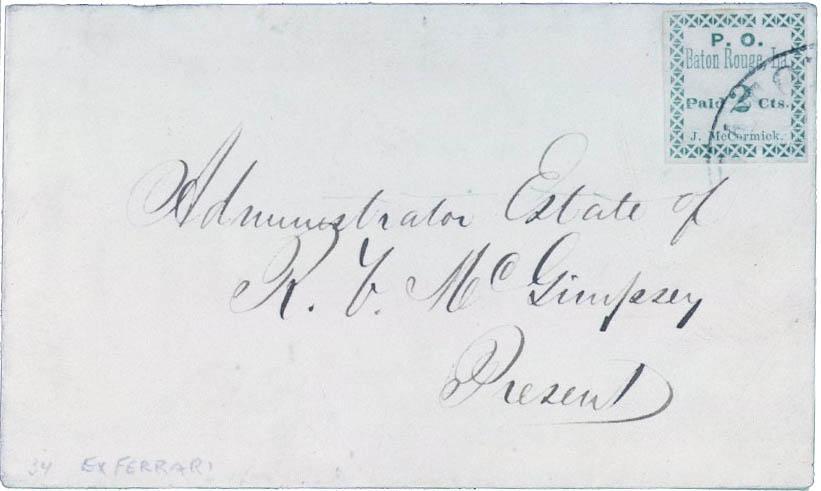 P. O.
Baton Rouge, La.
Paid 2 Cts.
J. McCormick.
Administrator Estate of
R. F. McGimpsey
Present
34 Ex FERRARI